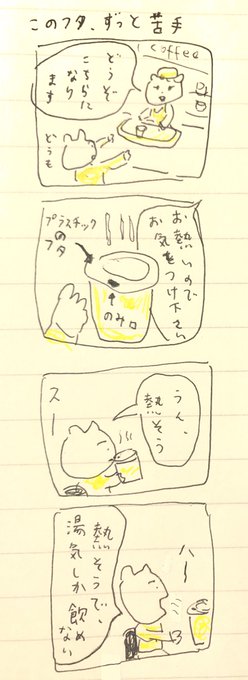 このフタ、ずっと苦手
coffee
どうぞ
こちらに
なり
ます
どうも
お熱いので
お気をつけ下さい
プラスチック
の
フタ
のみ口
うん、
熱そう
スー
ハ〜
熱そうで、
湯気しか飲め
ない